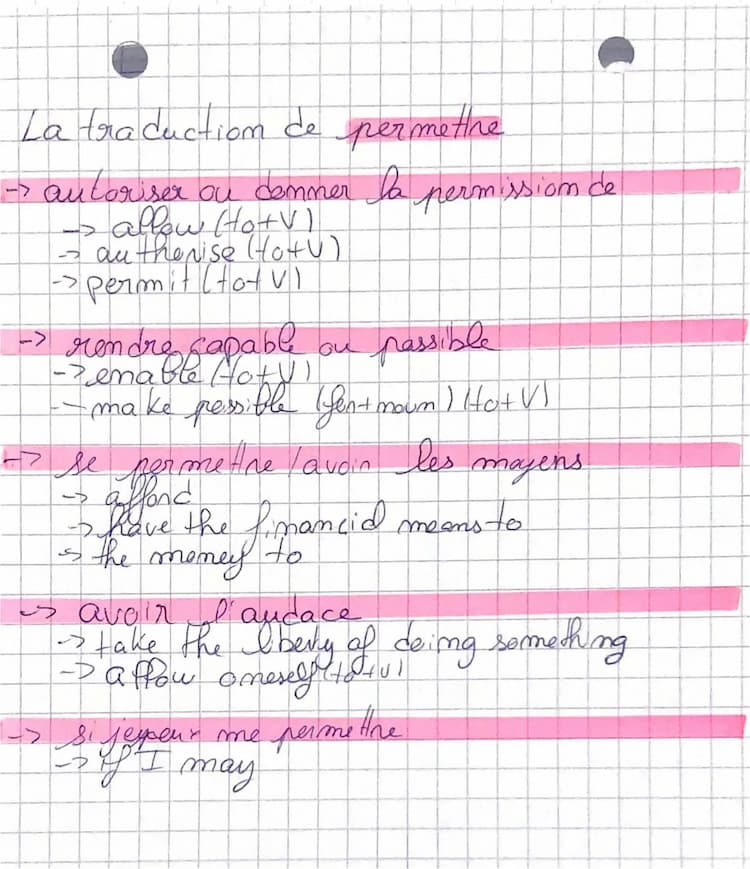 La traduction de permettre
-> autoriser ou donner la permission de
-> allow (to+V)
-> authorise (to+V)
-> permit (to+V)
-> rendre capable ou possible
-> enable (to+V)
-- make possible (for+noun) (to+V)
-> se permettre / avoir les moyens
-> afford
-> have the financial means to
-> the money to
-> avoir l'audace
-> take the liberty of doing something
-> allow oneself (to+V)
-> si je peux me permettre
-> if I may